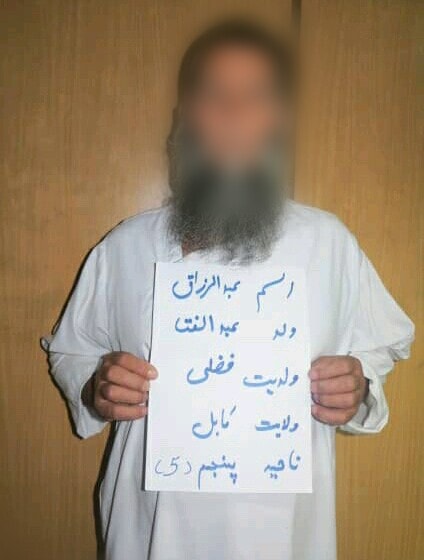 اسم عبدالرزاق
ولد عبدالفتا
ولدیت فضلی
ولایت کابل
ناحیه پنجم (5)